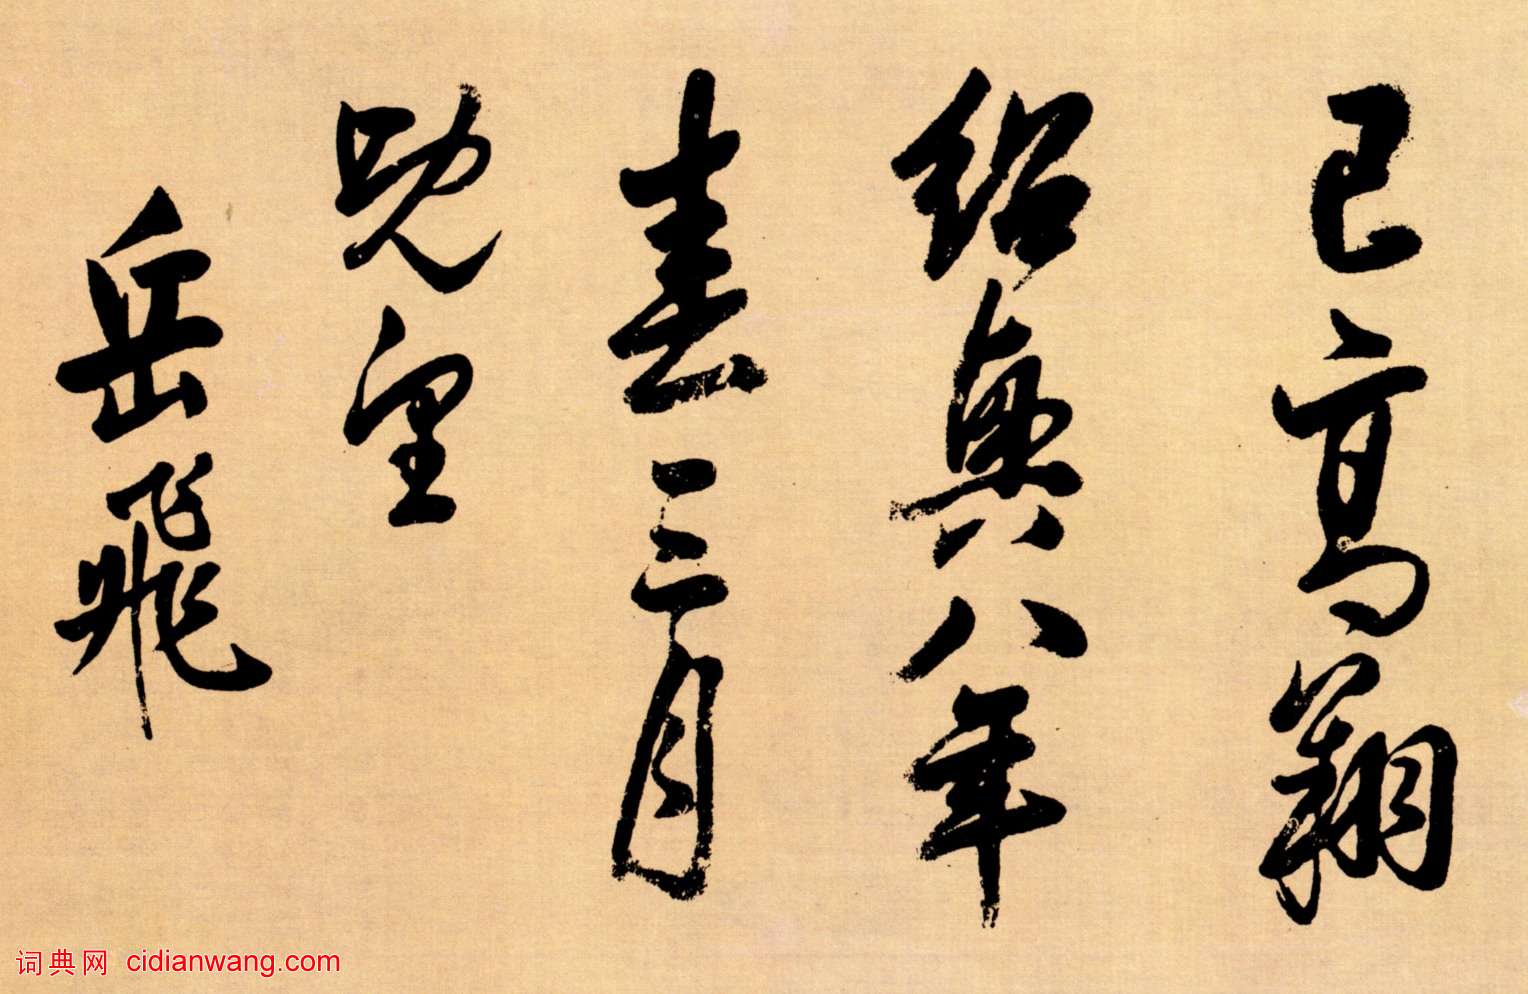 已高翔
紹興八年
春三月
既望
岳飛
词典网 cidianwang.com